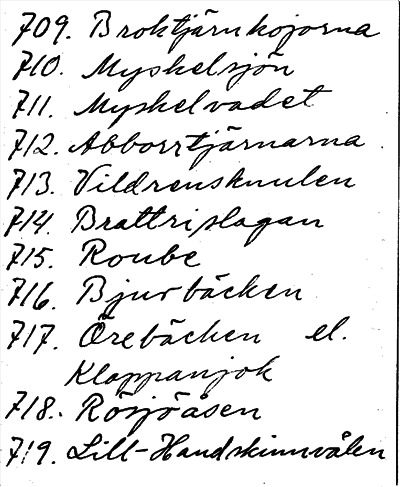 709. Broktjärnkojorna
710. Myskelsjön
711. Myskelvadet
712. Abborrtjärnarna
713. Vildrensknulen
714. Brattrislagan
715. Roube
716. Bjurbäcken
717. Örebäcken el.
Kloppanjok
718. Rösjöåsen
719. Lill-Handskinnvålen